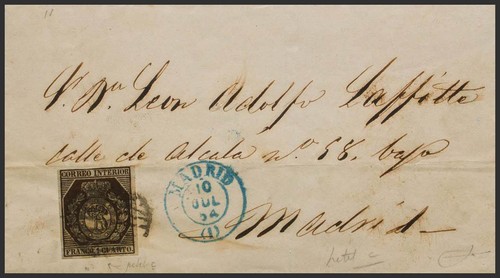 Sr. Dn. Leon Adolfo Laffitte
calle de Alcala no. 58. bajo
Madrid
CORREO INTERIOR
FRANCO 1 CUARTO
MADRID
10
JUL
54
(1)